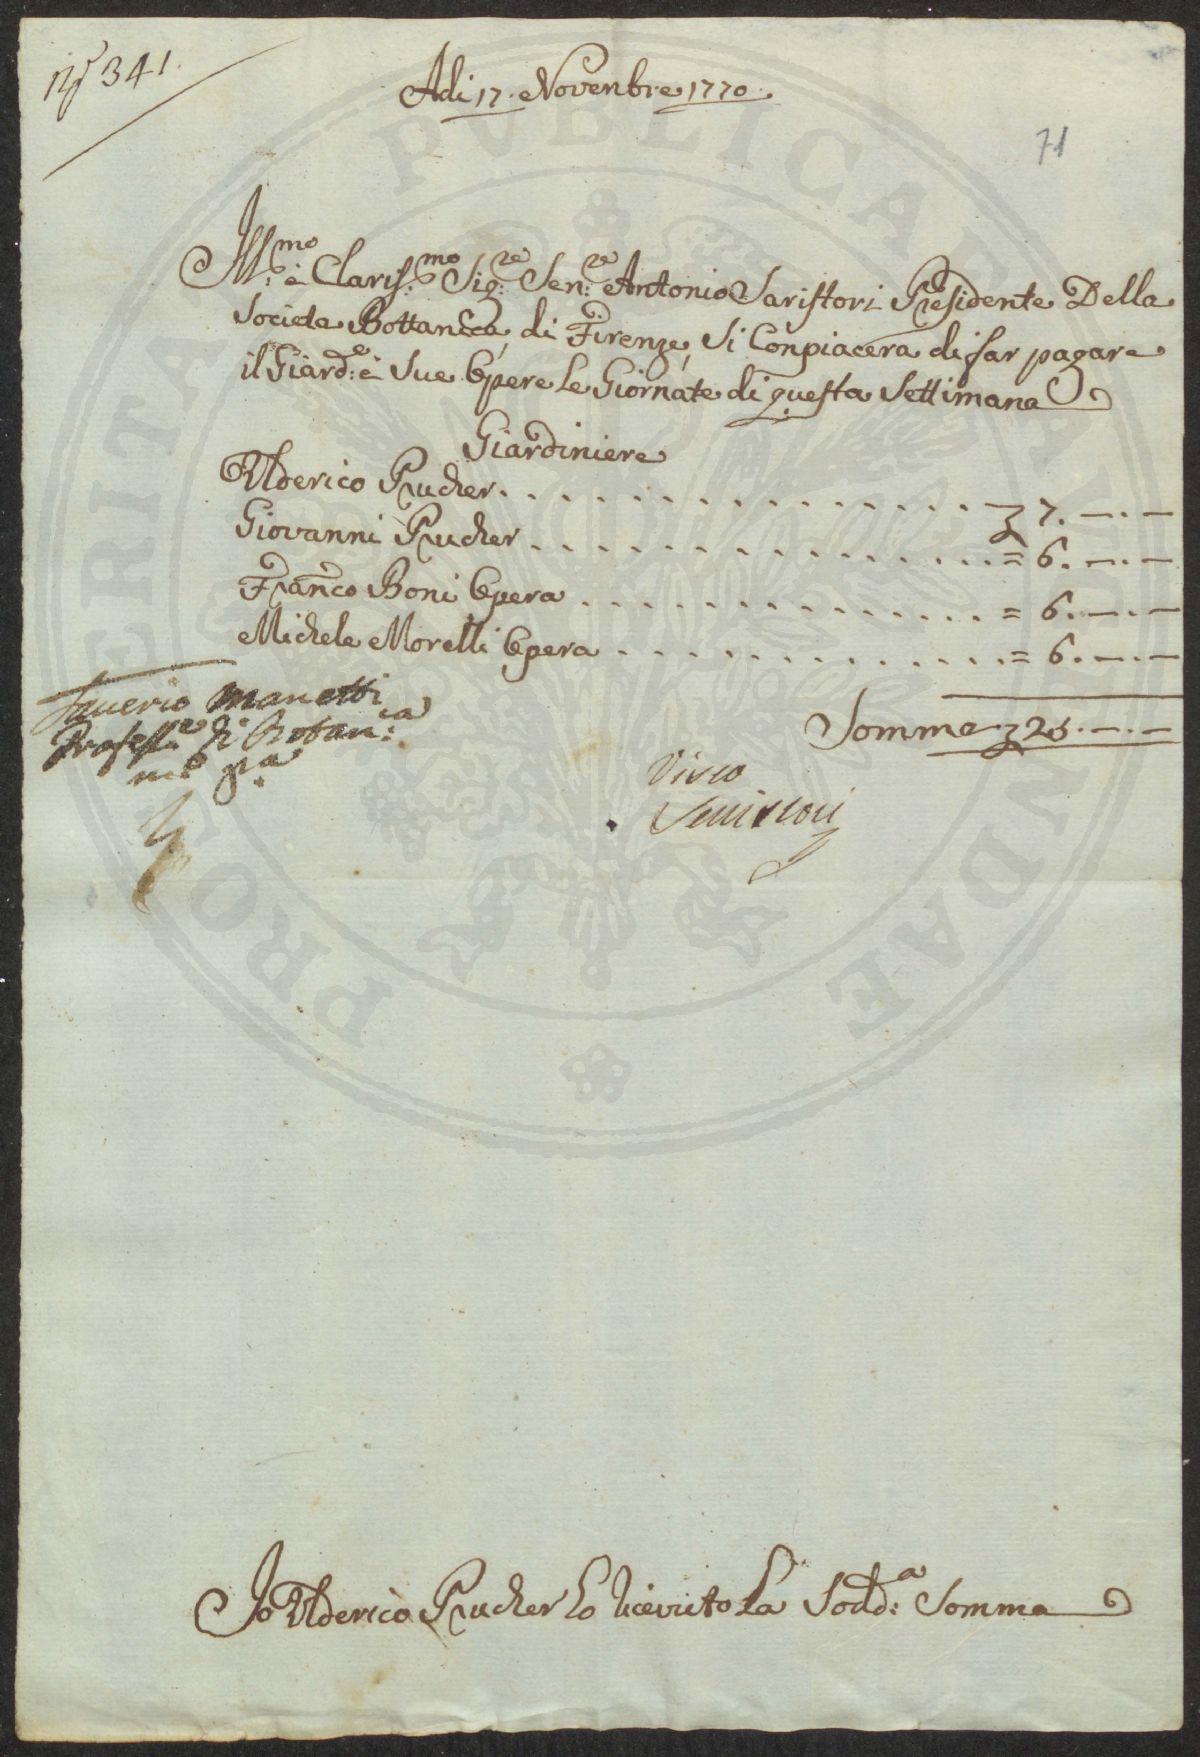 N.º 341.
Adi 17. Novenbre 1770.
71
Ill:mo è Claris:mo Sig:re Sen:re Antonio Saristori Presidente Della
Societa Bottanica, di Firenze, si Conpiacera di far pagare
il Giard:e è Sue Opere Le Giornate di questa Settimana
Giardiniere
Ulderico Prucher . . . . . . . . . . . . . . . . . . £ 7. —. —
Giovanni Prucher . . . . . . . . . . . . . . . . = 6. —. —
Fran:co Boni Opera . . . . . . . . . . . . . . . = 6. —. —
Michele Morelli Opera . . . . . . . . . . . . . = 6. —. —
Somma £ 25. —. —
Saverio Manetti
Profess:re di Botan:ca
m° p:a
Visto
Serristori
Io Ulderico Prucher ho ricevuto La Sodd:a Somma
PROSPERITATI PUBLICAE AUGENDAE